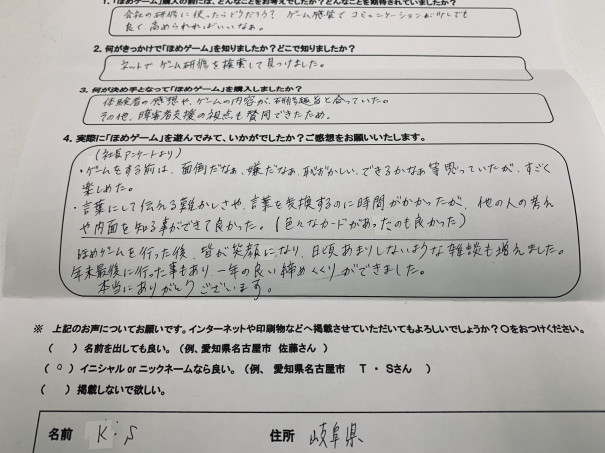 1.「ほめゲーム」購入の前には、どんなことをお考えでしたか？どんなことを期待されていましたか？
会社の研修に使ったらどうだろう？ ゲーム感覚でコミュニケーションが少しでも
良く、高められればいいなぁ。
2. 何がきっかけで「ほめゲーム」を知りましたか？どこで知りましたか？
ネットでゲーム研修を検索して見つけました。
3. 何が決め手となって「ほめゲーム」を購入しましたか？
体験者の感想や、ゲームの内容が、研修趣旨と合っていた。
その他、障害者支援の視点も賛同できたため。
4. 実際に「ほめゲーム」を遊んでみて、いかがでしたか？ご感想をお願いいたします。
（社長アンケートより）
・ゲームをする前は、面倒だなぁ、嫌だなぁ、恥ずかしい、できるかなぁ等思っていたが、すごく
楽しめた。
・言葉にして伝える難しさや、言葉を変換するのに時間がかかったが、他の人の考え
や内面を知る事ができて良かった。（色々なカードがあったのも良かった）
ほめゲームを行った後、皆が笑顔になり、日頃あまりしないような雑談も増えました。
年末最後に行った事もあり、一年の良い締めくくりができました。
本当にありがとうございます。
※ 上記のお声についてお願いです。インターネットや印刷物などへ掲載させていただいてもよろしいでしょうか？〇をおつけください。
（ ）名前を出しても良い。（例、愛知県名古屋市 佐藤さん ）
（ ○ ）イニシャル or ニックネームなら良い。（例、 愛知県名古屋市 T ・ Sさん ）
（ ）掲載しないで欲しい。
名前 K・S 住所 岐阜県